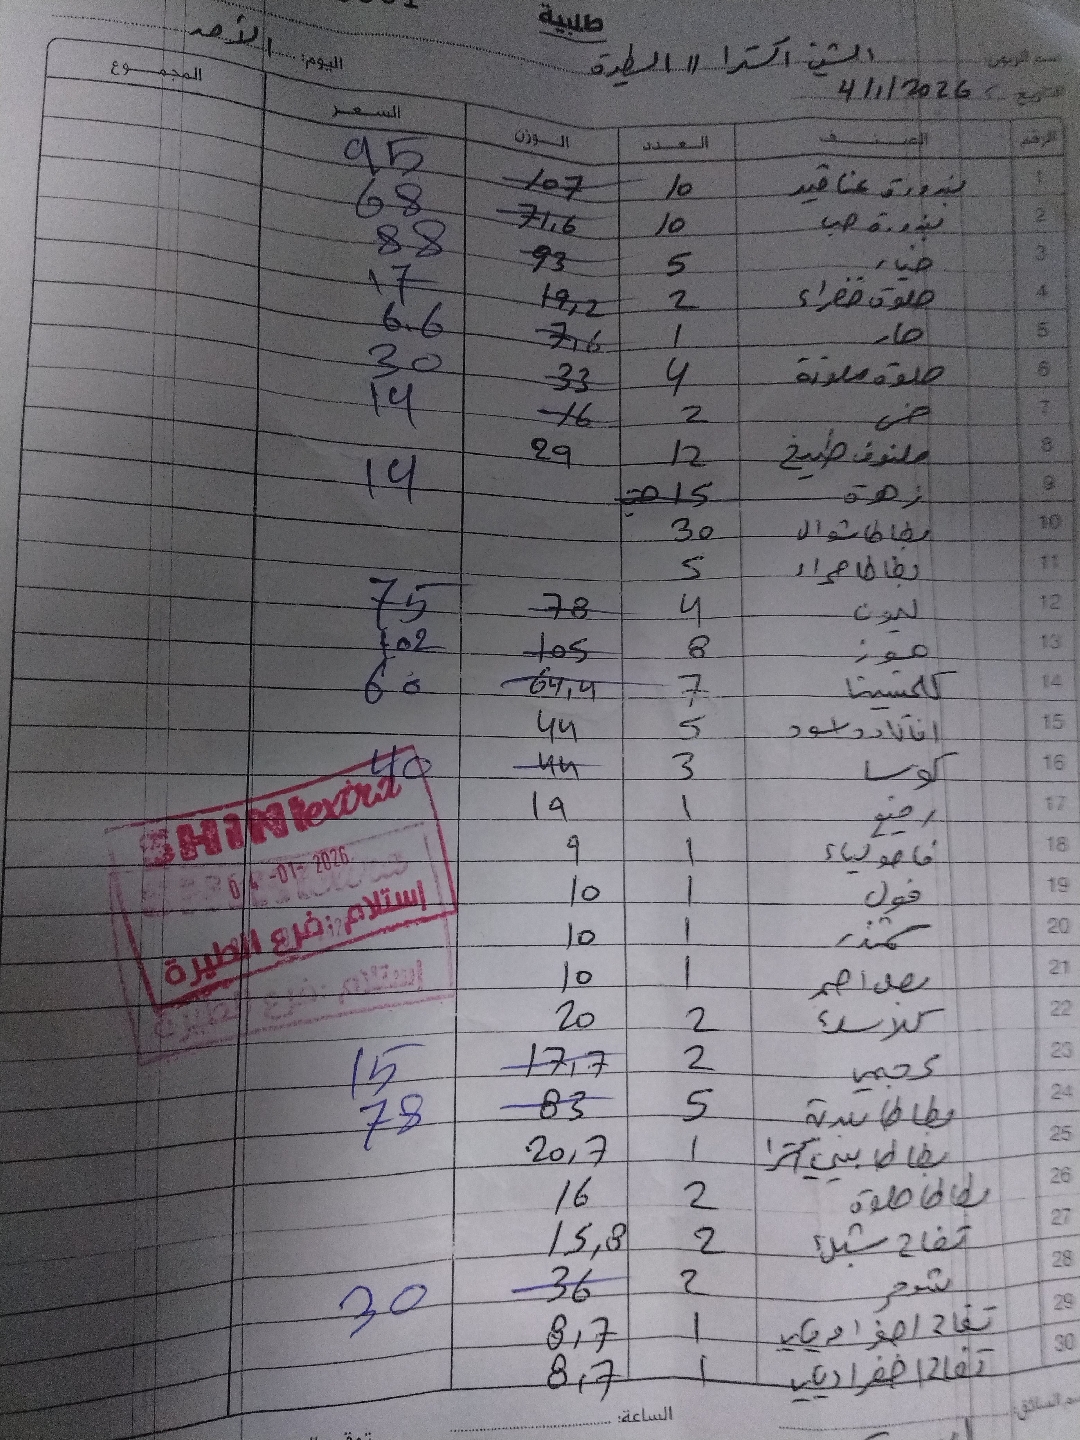 طلبية
الشيني اكسترا // الطيرة
اليوم: الأحد
4/1/2026
الرقم الصنف العدد الوزن السعر المجموع
1 بندورة عناقيد 10 107 95
2 بندورة حب 10 71,6 68
3 خيار 5 93 88
4 حلوة خضراء 2 19,2 17
5 حار 1 7,6 6.6
6 حلوة ملونة 4 33 30
7 خس 2 16 14
8 ملفوف طبيخ 12 29
9 زهرة 15 حبة 14
10 بطاطا شوال 30
11 بطاطا حمراء 5
12 ليمون 4 78 75
13 موز 8 105 102
14 كلمنتينا 7 64,4 60
15 5 44
16 كوسا 3 44 40
17 1 19
18 فاصولياء 1 9
19 فول 1 10
20 شمندر 1 10
21 بصل احمر 1 10
22 2 20
23 2 17,7 15
24 بطاطا بلدية 5 83 78
25 بطاطا بيبي اكسترا 1 20,7
26 بطاطا حلوة 2 16
27 تفاح 2 15,8
28 شومر 2 36 30
29 تفاح اصفر 1 8,7
30 تفاح اخضر 1 8,7
SHINI extra
04-01-2026
إستلام: فرع الطيرة
الساعة: